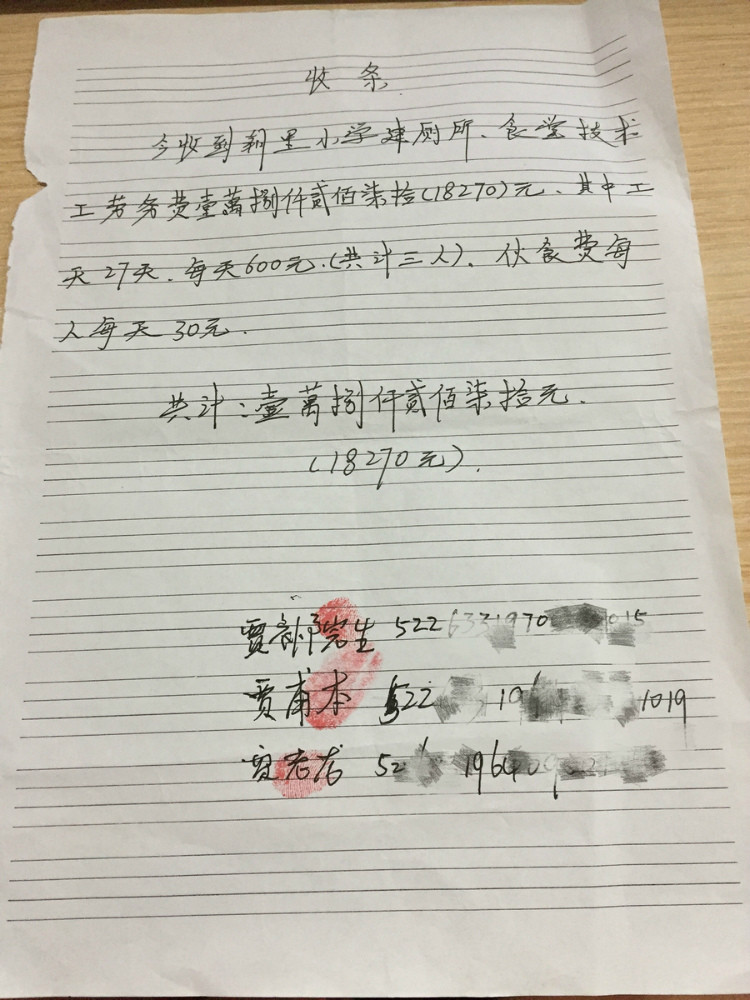 收条
今收到新里小学建厕所、食堂技术
工劳务费壹萬捌仟贰佰柒拾(18270)元、其中工
天27天、每天600元、(共计三人)、伙食费每
人每天30元.
共计:壹萬捌仟贰佰柒拾元.
(18270元).
贾 岩生 522
贾甫本 522 19 1019
贾老龙 52 1964